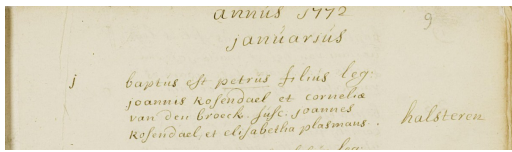 annus 1772
9
januarius
j baptus est petrus filius leg:
joannis Rosendael et corneliæ
van den broeck. susc. joannes
Rosendael, et elisabetha plasmans. halsteren
leg: